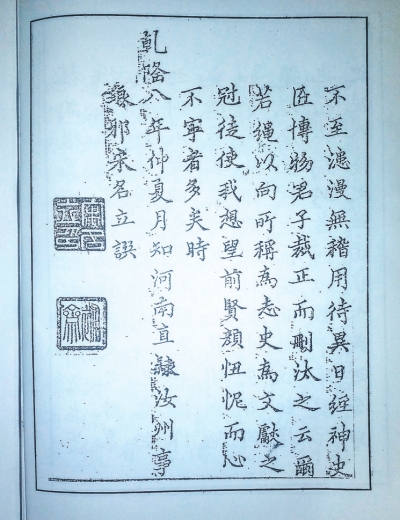 不至漶漫無稽用待異日經神史
匠博物君子裁正而刪汰之云爾
若繩以向所稱為志史為文獻之
冠徒使我想望前賢顏忸怩而心
不寧者多矣時
乾隆八年仲夏月知河南直隸汝州事
琅邪宋名立譔